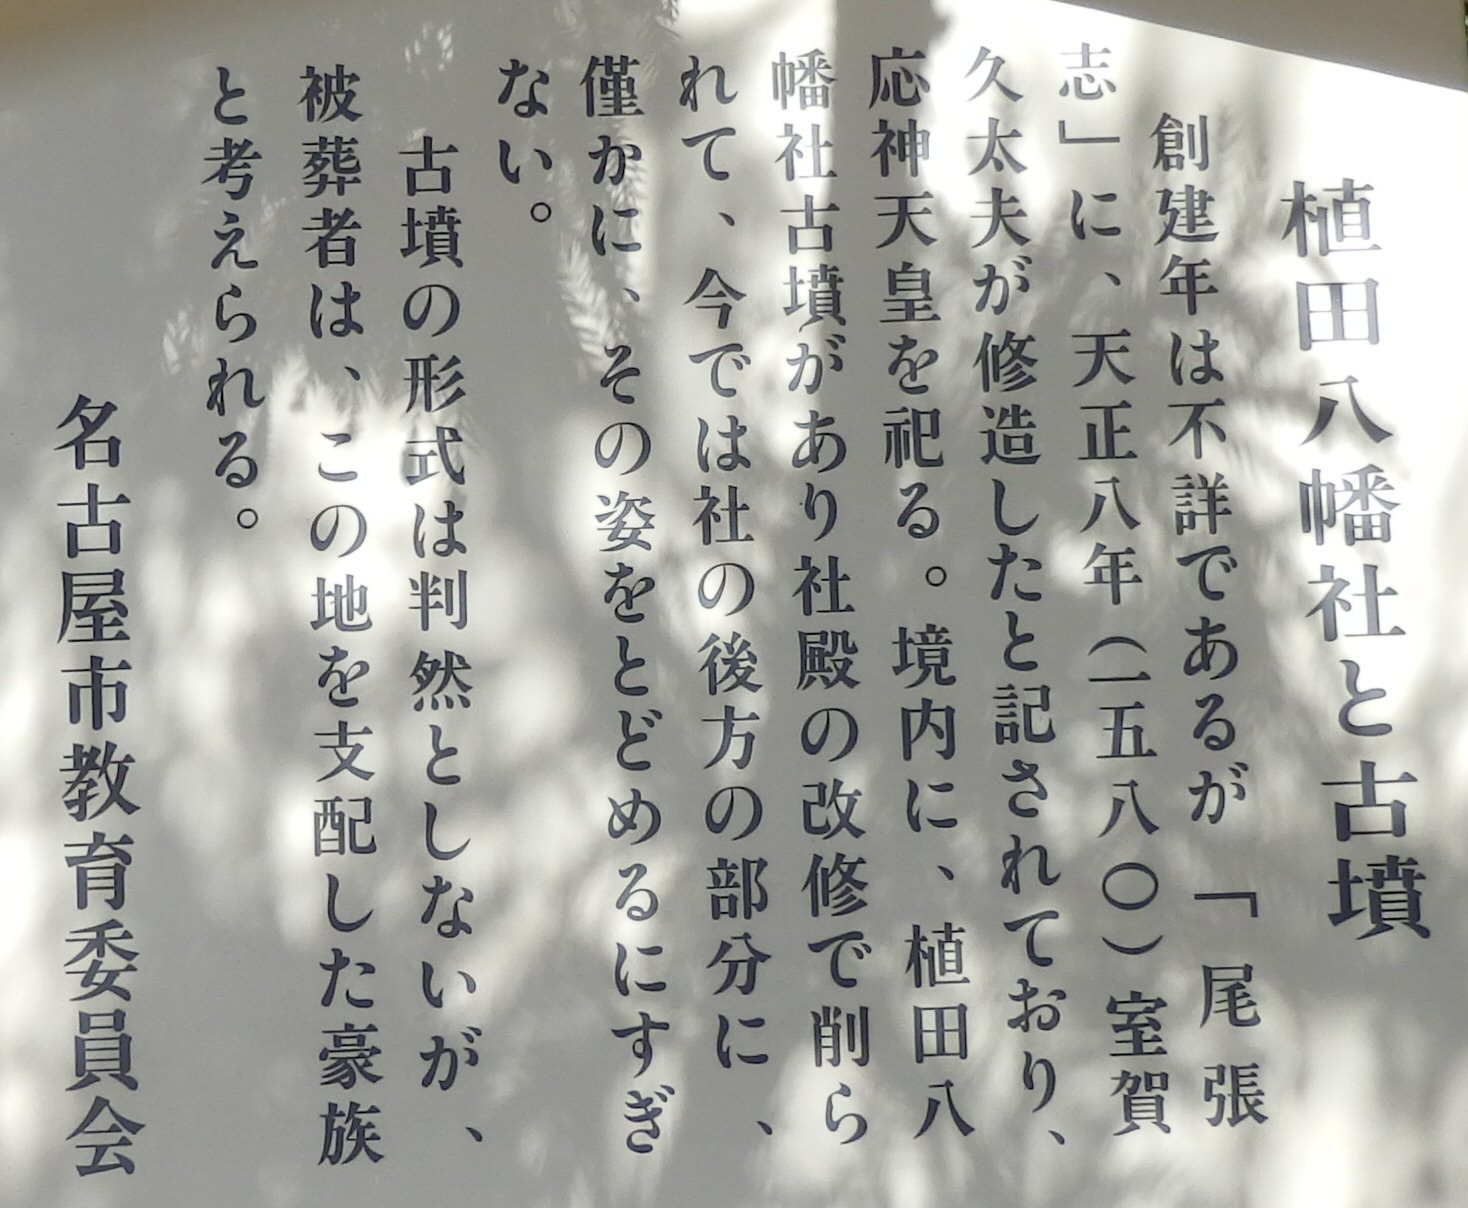 植田八幡社と古墳
創建年は不詳であるが「尾張
志」に、天正八年(一五八〇)室賀
久太夫が修造したと記されており、
応神天皇を祀る。境内に、植田八
幡社古墳があり社殿の改修で削ら
れて、今では社の後方の部分に、
僅かに、その姿をとどめるにすぎ
ない。
古墳の形式は判然としないが、
被葬者は、この地を支配した豪族
と考えられる。
名古屋市教育委員会